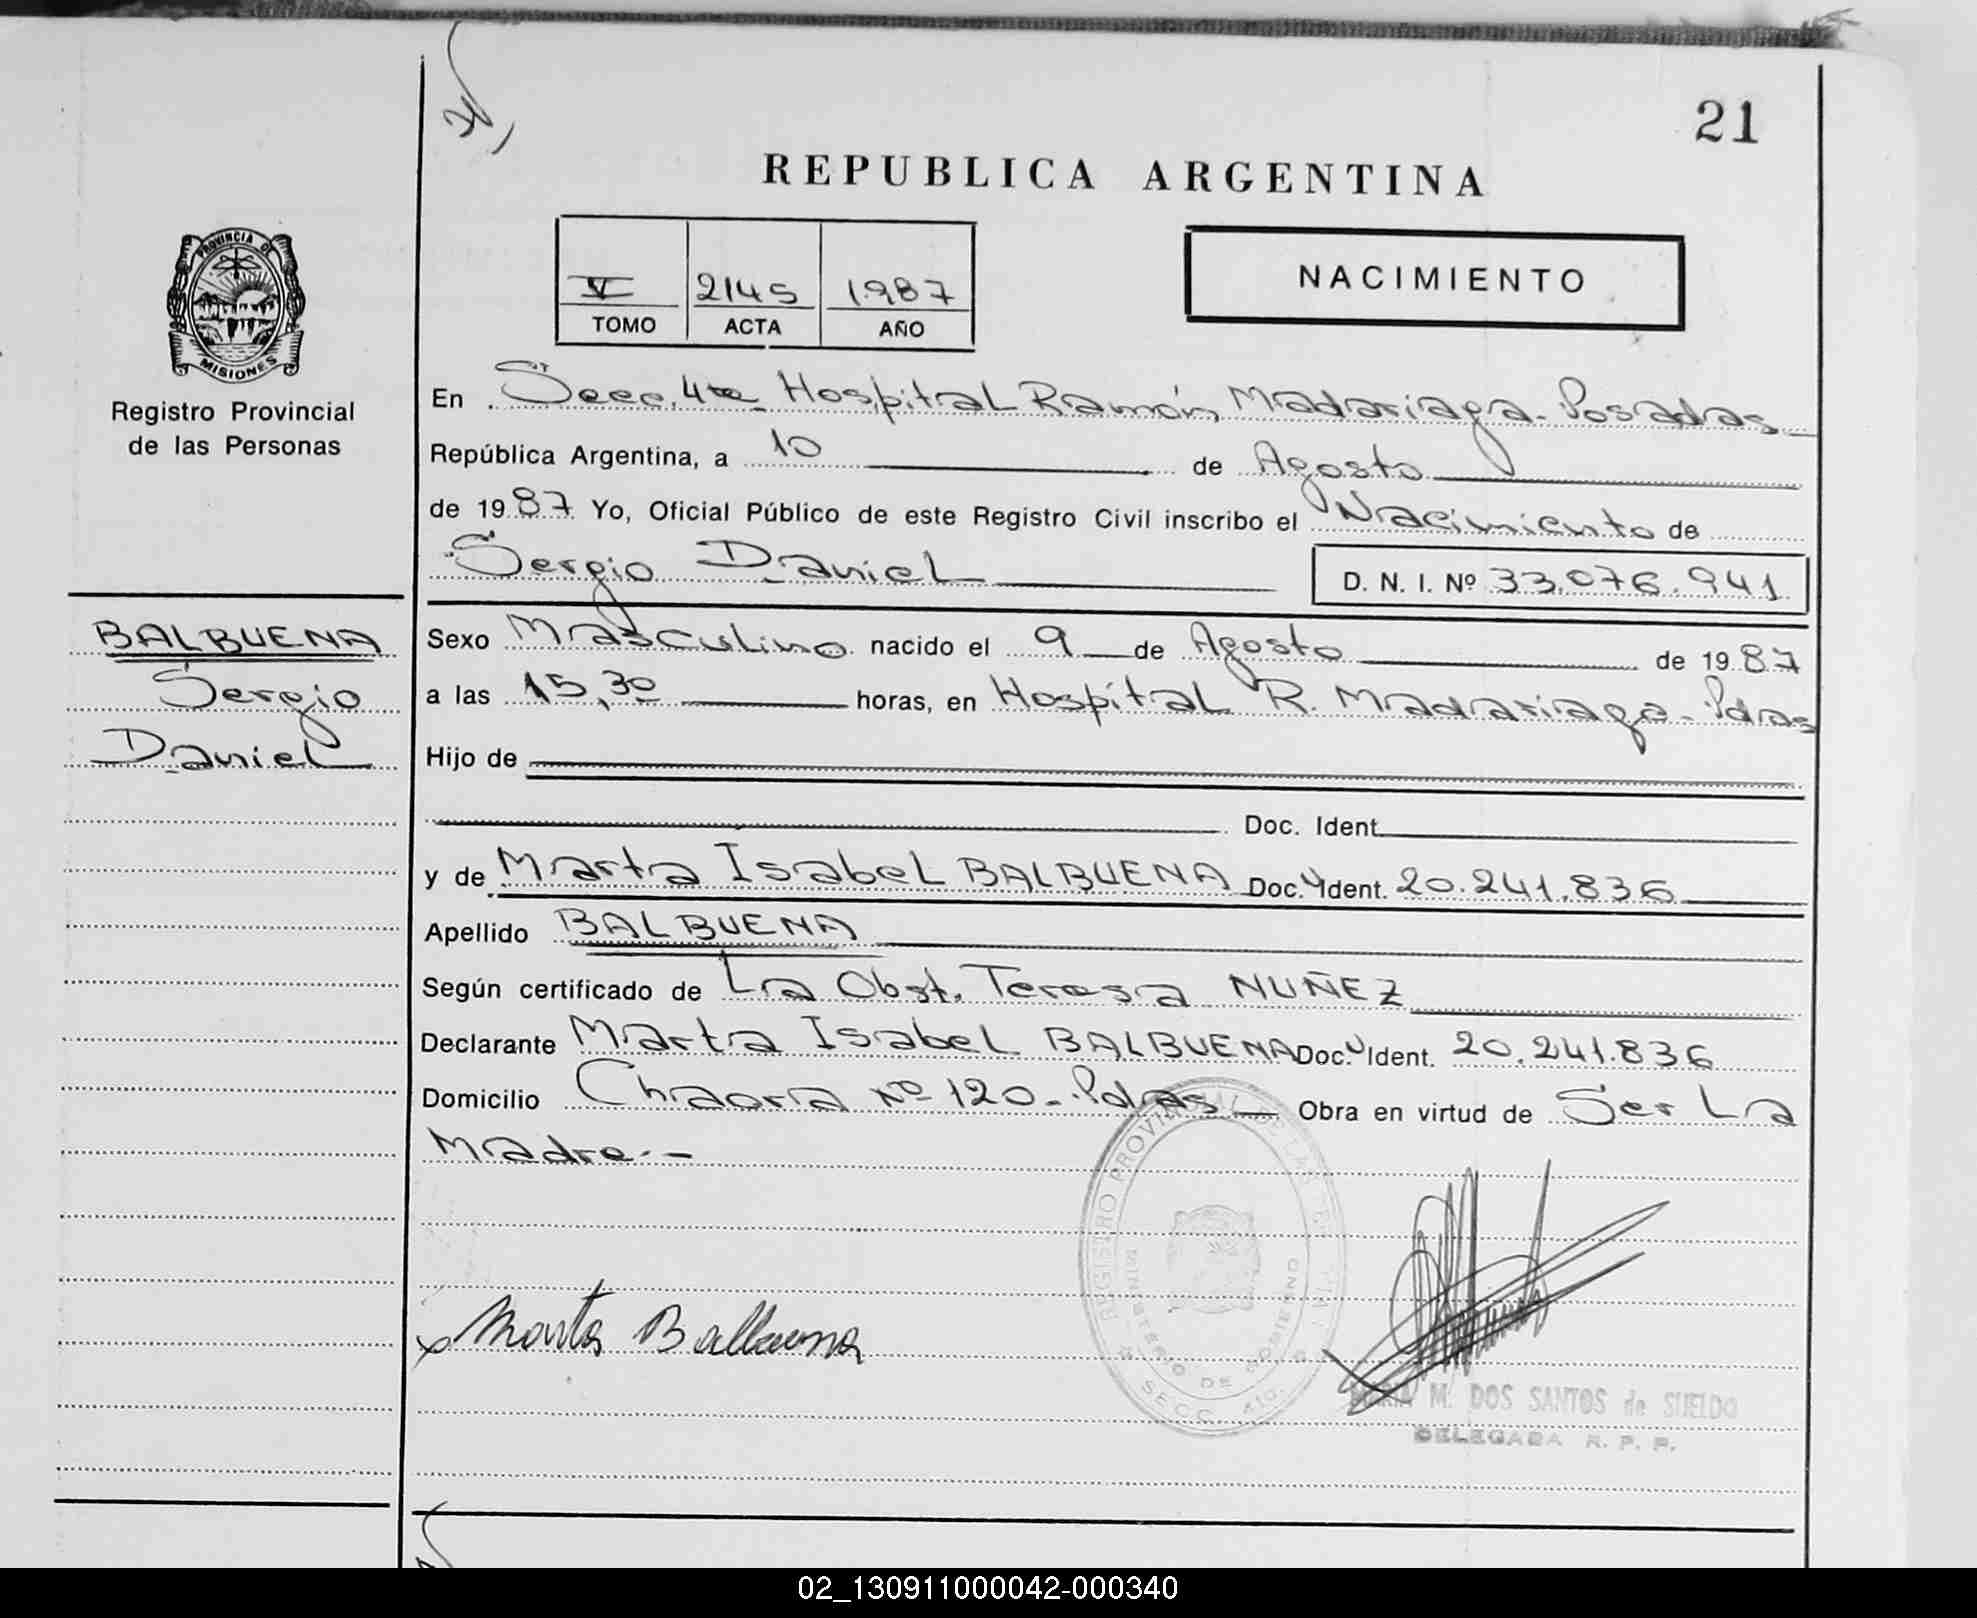 21
REPUBLICA ARGENTINA
PROVINCIA DE
MISIONES
Registro Provincial
de las Personas
V 2145 1987
TOMO ACTA AÑO
NACIMIENTO
En Secc. 4ta Hospital Ramón Madariaga - Posadas
República Argentina, a 10 de Agosto
de 1987 Yo, Oficial Público de este Registro Civil inscribo el Nacimiento de
Sergio Daniel D. N. I. Nº 33.076.941
BALBUENA
Sergio
Daniel
Sexo Masculino nacido el 9 de Agosto de 1987
a las 15,30 horas, en Hospital R. Madariaga - Pdas
Hijo de
Doc. Ident.
y de Marta Isabel BALBUENA Doc. Ident. 20.241.836
Apellido BALBUENA
Según certificado de La Obst. Teresa NUÑEZ
Declarante Marta Isabel BALBUENA Doc. Ident. 20.241.836
Domicilio Nº 120 - Pdas Obra en virtud de Ser La
Madre.-
REGISTRO PROVINCIAL DE LAS
MINISTERIO DE GOBIERNO
SECC. 4ta.
x Marta Balbuena
MARIA M. DOS SANTOS de SUELDO
DELEGADA R. P. P.
02_130911000042-000340